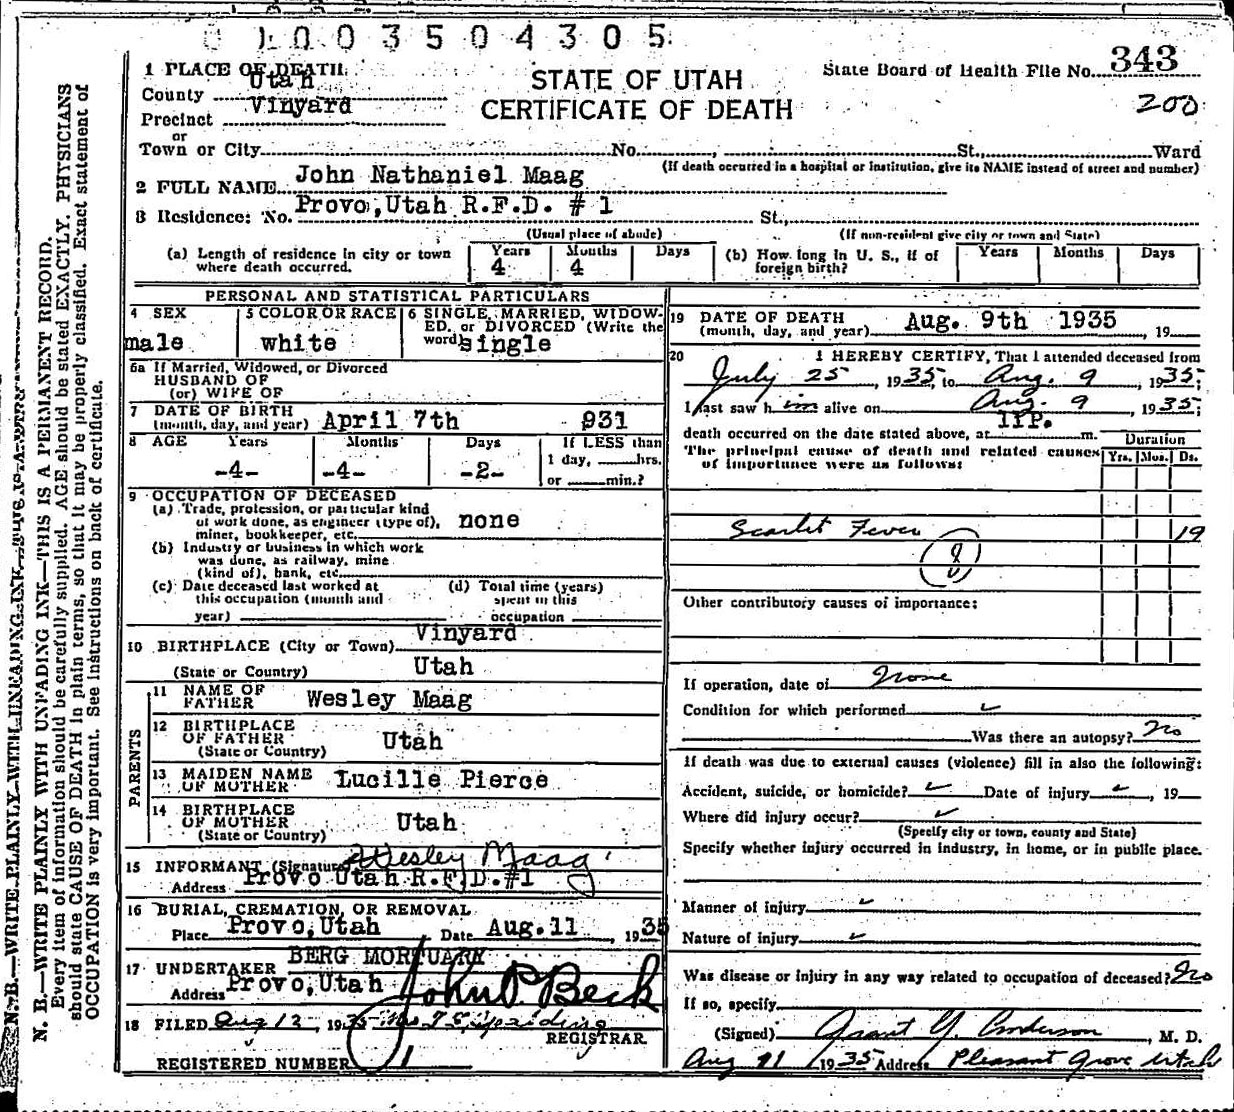 0 1 0 0 3 5 0 4 3 0 5
State Board of Health File No. 343
200
STATE OF UTAH
CERTIFICATE OF DEATH
1 PLACE OF DEATH
County Utah
Precinct Vinyard
or
Town or City No. , St., Ward
(If death occurred in a hospital or institution, give its NAME instead of street and number)
2 FULL NAME John Nathaniel Maag
3 Residence: No. Provo, Utah R.F.D. #1 St.,
(Usual place of abode) (If non-resident give city or town and State)
(a) Length of residence in city or town where death occurred. Years 4 Months 4 Days
(b) How long in U. S., if of foreign birth? Years Months Days
PERSONAL AND STATISTICAL PARTICULARS
4 SEX male
5 COLOR OR RACE white
6 SINGLE, MARRIED, WIDOWED, or DIVORCED (Write the word) single
6a If Married, Widowed, or Divorced
HUSBAND OF
(or) WIFE OF
7 DATE OF BIRTH
(month, day, and year) April 7th 931
8 AGE Years -4- Months -4- Days -2-
If LESS than
1 day, hrs.
or min.?
9 OCCUPATION OF DECEASED
(a) Trade, profession, or particular kind
of work done, as engineer (type of),
miner, bookkeeper, etc. none
(b) Industry or business in which work
was done, as railway, mine
(kind of), bank, etc.
(c) Date deceased last worked at
this occupation (month and
year)
(d) Total time (years)
spent in this
occupation
10 BIRTHPLACE (City or Town) Vinyard
(State or Country) Utah
PARENTS
11 NAME OF
FATHER Wesley Maag
12 BIRTHPLACE
OF FATHER
(State or Country) Utah
13 MAIDEN NAME
OF MOTHER Lucille Pierce
14 BIRTHPLACE
OF MOTHER
(State or Country) Utah
15 INFORMANT (Signature) Wesley Maag
Address Provo Utah R.F.D.#1
16 BURIAL, CREMATION, OR REMOVAL
Place Provo, Utah Date Aug. 11, 1935
17 UNDERTAKER BERG MORTUARY
Address Provo, Utah John P. Beck
18 FILED Aug 12, 1935
REGISTRAR
REGISTERED NUMBER 1
19 DATE OF DEATH
(month, day, and year) Aug. 9th 1935, 19
20 I HEREBY CERTIFY, That I attended deceased from
July 25, 1935, to Aug. 9, 1935;
I last saw him alive on Aug. 9, 1935;
death occurred on the date stated above, at 11P. m.
The principal cause of death and related causes
of importance were as follows:
Duration
Yrs. Mos. Ds.
Scarlet Fever 19
8
Other contributory causes of importance:
If operation, date of None
Condition for which performed
Was there an autopsy? No
If death was due to external causes (violence) fill in also the following:
Accident, suicide, or homicide? Date of injury , 19
Where did injury occur?
(Specify city or town, county and State)
Specify whether injury occurred in industry, in home, or in public place.
Manner of injury
Nature of injury
Was disease or injury in any way related to occupation of deceased? No
If so, specify
(Signed) Grant Y. Anderson, M. D.
Aug 11 1935 Address Pleasant Grove Utah
N. B.—WRITE PLAINLY WITH UNFADING INK—THIS IS A PERMANENT RECORD.
Every item of information should be carefully supplied. AGE should be stated EXACTLY. PHYSICIANS
should state CAUSE OF DEATH in plain terms, so that it may be properly classified. Exact statement of
OCCUPATION is very important. See instructions on back of certificate.